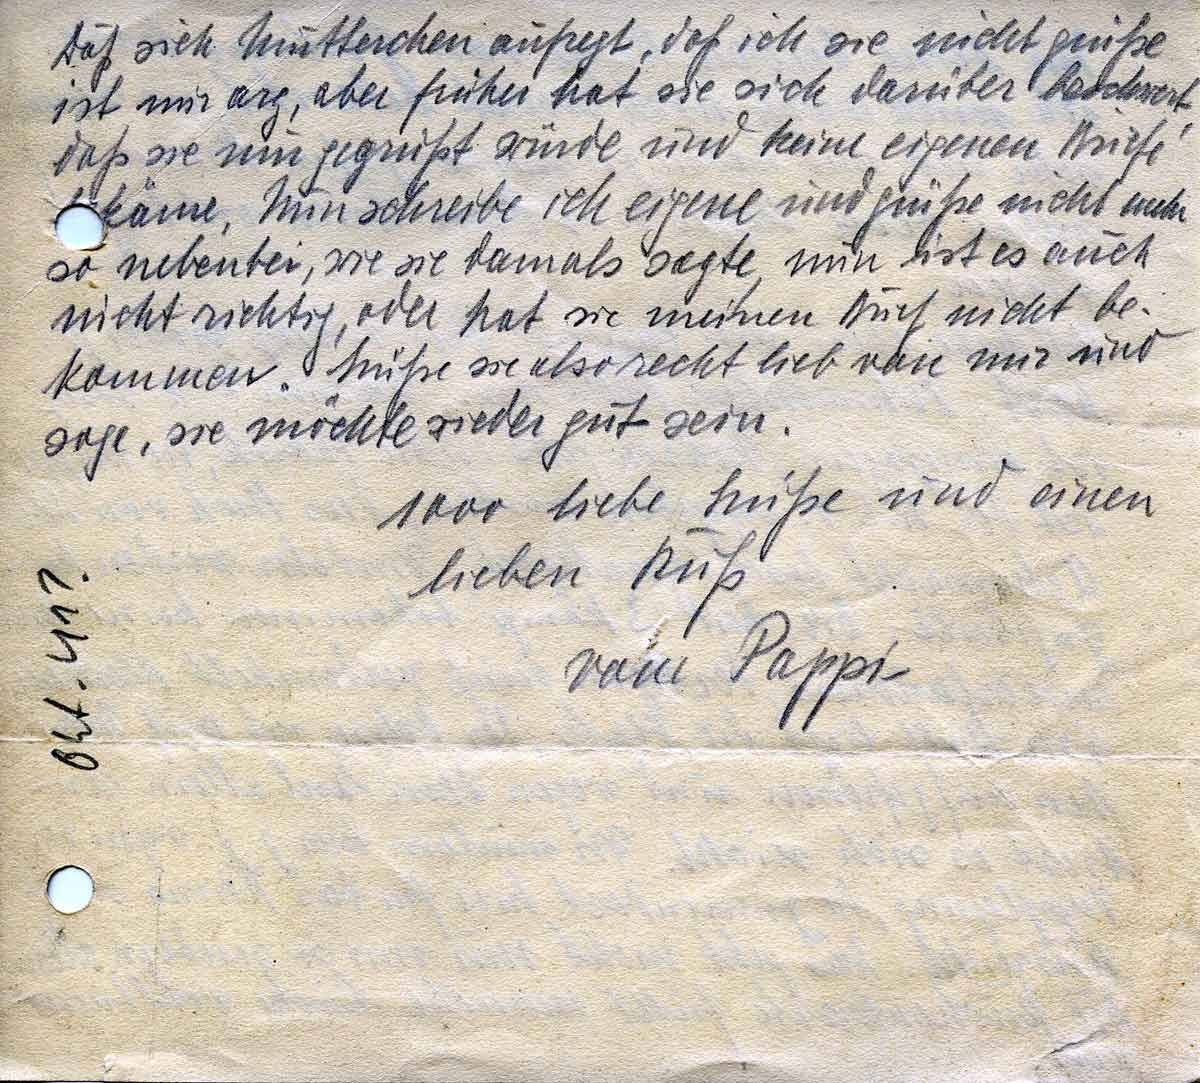 Daß sich Mutterchen aufregt, daß ich sie nicht grüße
ist mir arg, aber früher hat sie sich darüber beschwert,
daß sie nur gegrüßt würde und keine eigenen Briefe
bekäme, Nun schreibe ich eigene und grüße nicht mehr
so nebenbei, wie sie damals sagte, nun ist es auch
nicht richtig, oder hat sie meinen Brief nicht be-
kommen. Grüße sie also recht lieb von mir und
sage, sie möchte wieder gut sein.
1000 liebe Grüße und einen
lieben Kuß
vom Pappi
Okt. 41?